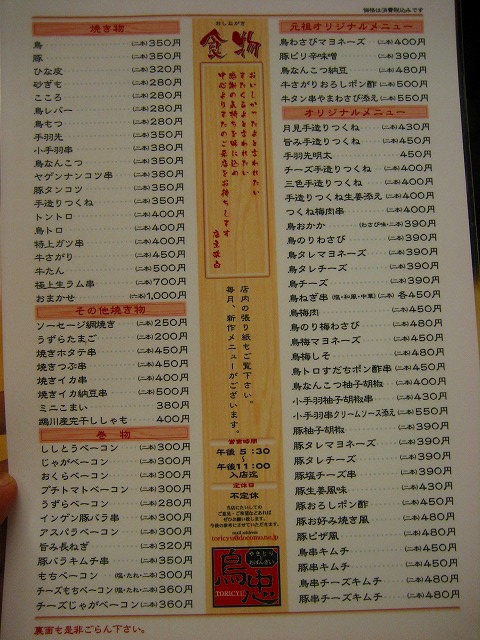 価格は消費税込みです
焼き物
鳥 (二本)350円
豚 (二本)350円
ひな皮 (二本)320円
砂ぎも (二本)280円
こころ (二本)280円
鳥レバー (二本)280円
鳥もつ (二本)280円
手羽先 (二本)350円
小手羽串 (二本)380円
鳥なんこつ (二本)350円
ヤゲンナンコツ串 (二本)380円
豚タンコツ (二本)350円
手造りつくね (二本)350円
トントロ (二本)400円
鳥トロ (二本)400円
特上ガツ串 (二本)400円
牛さがり (二本)450円
牛たん (二本)500円
極上生ラム串 (二本)700円
おまかせ (六本)1,000円
その他焼き物
ソーセージ網焼き (二本)250円
うずらたまご (二本)200円
焼きホタテ串 (二本)450円
焼きつぶ串 (二本)450円
焼きイカ串 (二本)400円
焼きイカ納豆串 (二本)500円
ミニこまい 380円
鵡川産完干ししゃも 400円
巻物
ししとうベーコン (二本)300円
じゃがベーコン (二本)300円
おくらベーコン (二本)300円
プチトマトベーコン (二本)300円
うずらベーコン (二本)280円
インゲン豚バラ串 (二本)300円
アスパラベーコン (二本)300円
旨み長ねぎ (二本)320円
豚バラキムチ串 (二本)350円
もちベーコン (塩・たれ・二本)300円
チーズもちベーコン (塩・たれ・二本)360円
チーズじゃがベーコン (二本)360円
裏面も是非ごらん下さい。
おしながき
食物
おいしかったよと言われたい
またくるよと言われたい
感謝の気持ちを味に込め
心よりまたのご来店をお待ちします
店主敬白
店内の張り紙もご覧下さい。
毎月、新作メニューがございます。
営業時間
午後5:30
~
午後11:00
入店迄
定休日
不定休
当店にたいしての
ご意見・ご希望などあれば
ぜひお願い致します。
今後の参考とさせていただきます。
mail address
toricyu@docomo.ne.jp
やきとり
おばんざい
鳥忠
TORICYU
元祖オリジナルメニュー
鳥わさびマヨネーズ (二本)400円
豚ピリ辛味噌 (二本)390円
鳥なんこつ納豆 (二本)480円
牛さがりおろしポン酢 (二本)500円
牛タン串やまわさび添え (二本)550円
オリジナルメニュー
月見手造りつくね (二本)430円
旨み手造りつくね (二本)450円
手羽先明太 450円
チーズ手造りつくね (二本)400円
三色手造りつくね (二本)400円
手造りつくね生姜添え (二本)400円
つくね梅肉串 (二本)400円
鳥おかか (わさび味・二本)390円
鳥のりわさび (二本)390円
鳥タレマヨネーズ (二本)390円
鳥タレチーズ (二本)390円
鳥チーズ (二本)390円
鳥ねぎ串 (塩・和風・中華) (二本)各450円
鳥梅肉 (二本)450円
鳥のり梅わさび (二本)480円
鳥梅マヨネーズ (二本)450円
鳥梅しそ (二本)480円
鳥トロすだちポン酢串 (二本)450円
鳥なんこつ柚子胡椒 (二本)400円
小手羽柚子胡椒串 (二本)430円
小手羽串クリームソース添え (二本)550円
豚柚子胡椒 (二本)390円
豚タレマヨネーズ (二本)390円
豚タレチーズ (二本)390円
豚塩チーズ串 (二本)390円
豚生姜風味 (二本)430円
豚おろしポン酢 (二本)450円
豚お好み焼き風 (二本)480円
豚ピザ風 (二本)480円
鳥串キムチ (二本)450円
豚串キムチ (二本)450円
鳥串チーズキムチ (二本)480円
豚串チーズキムチ (二本)480円